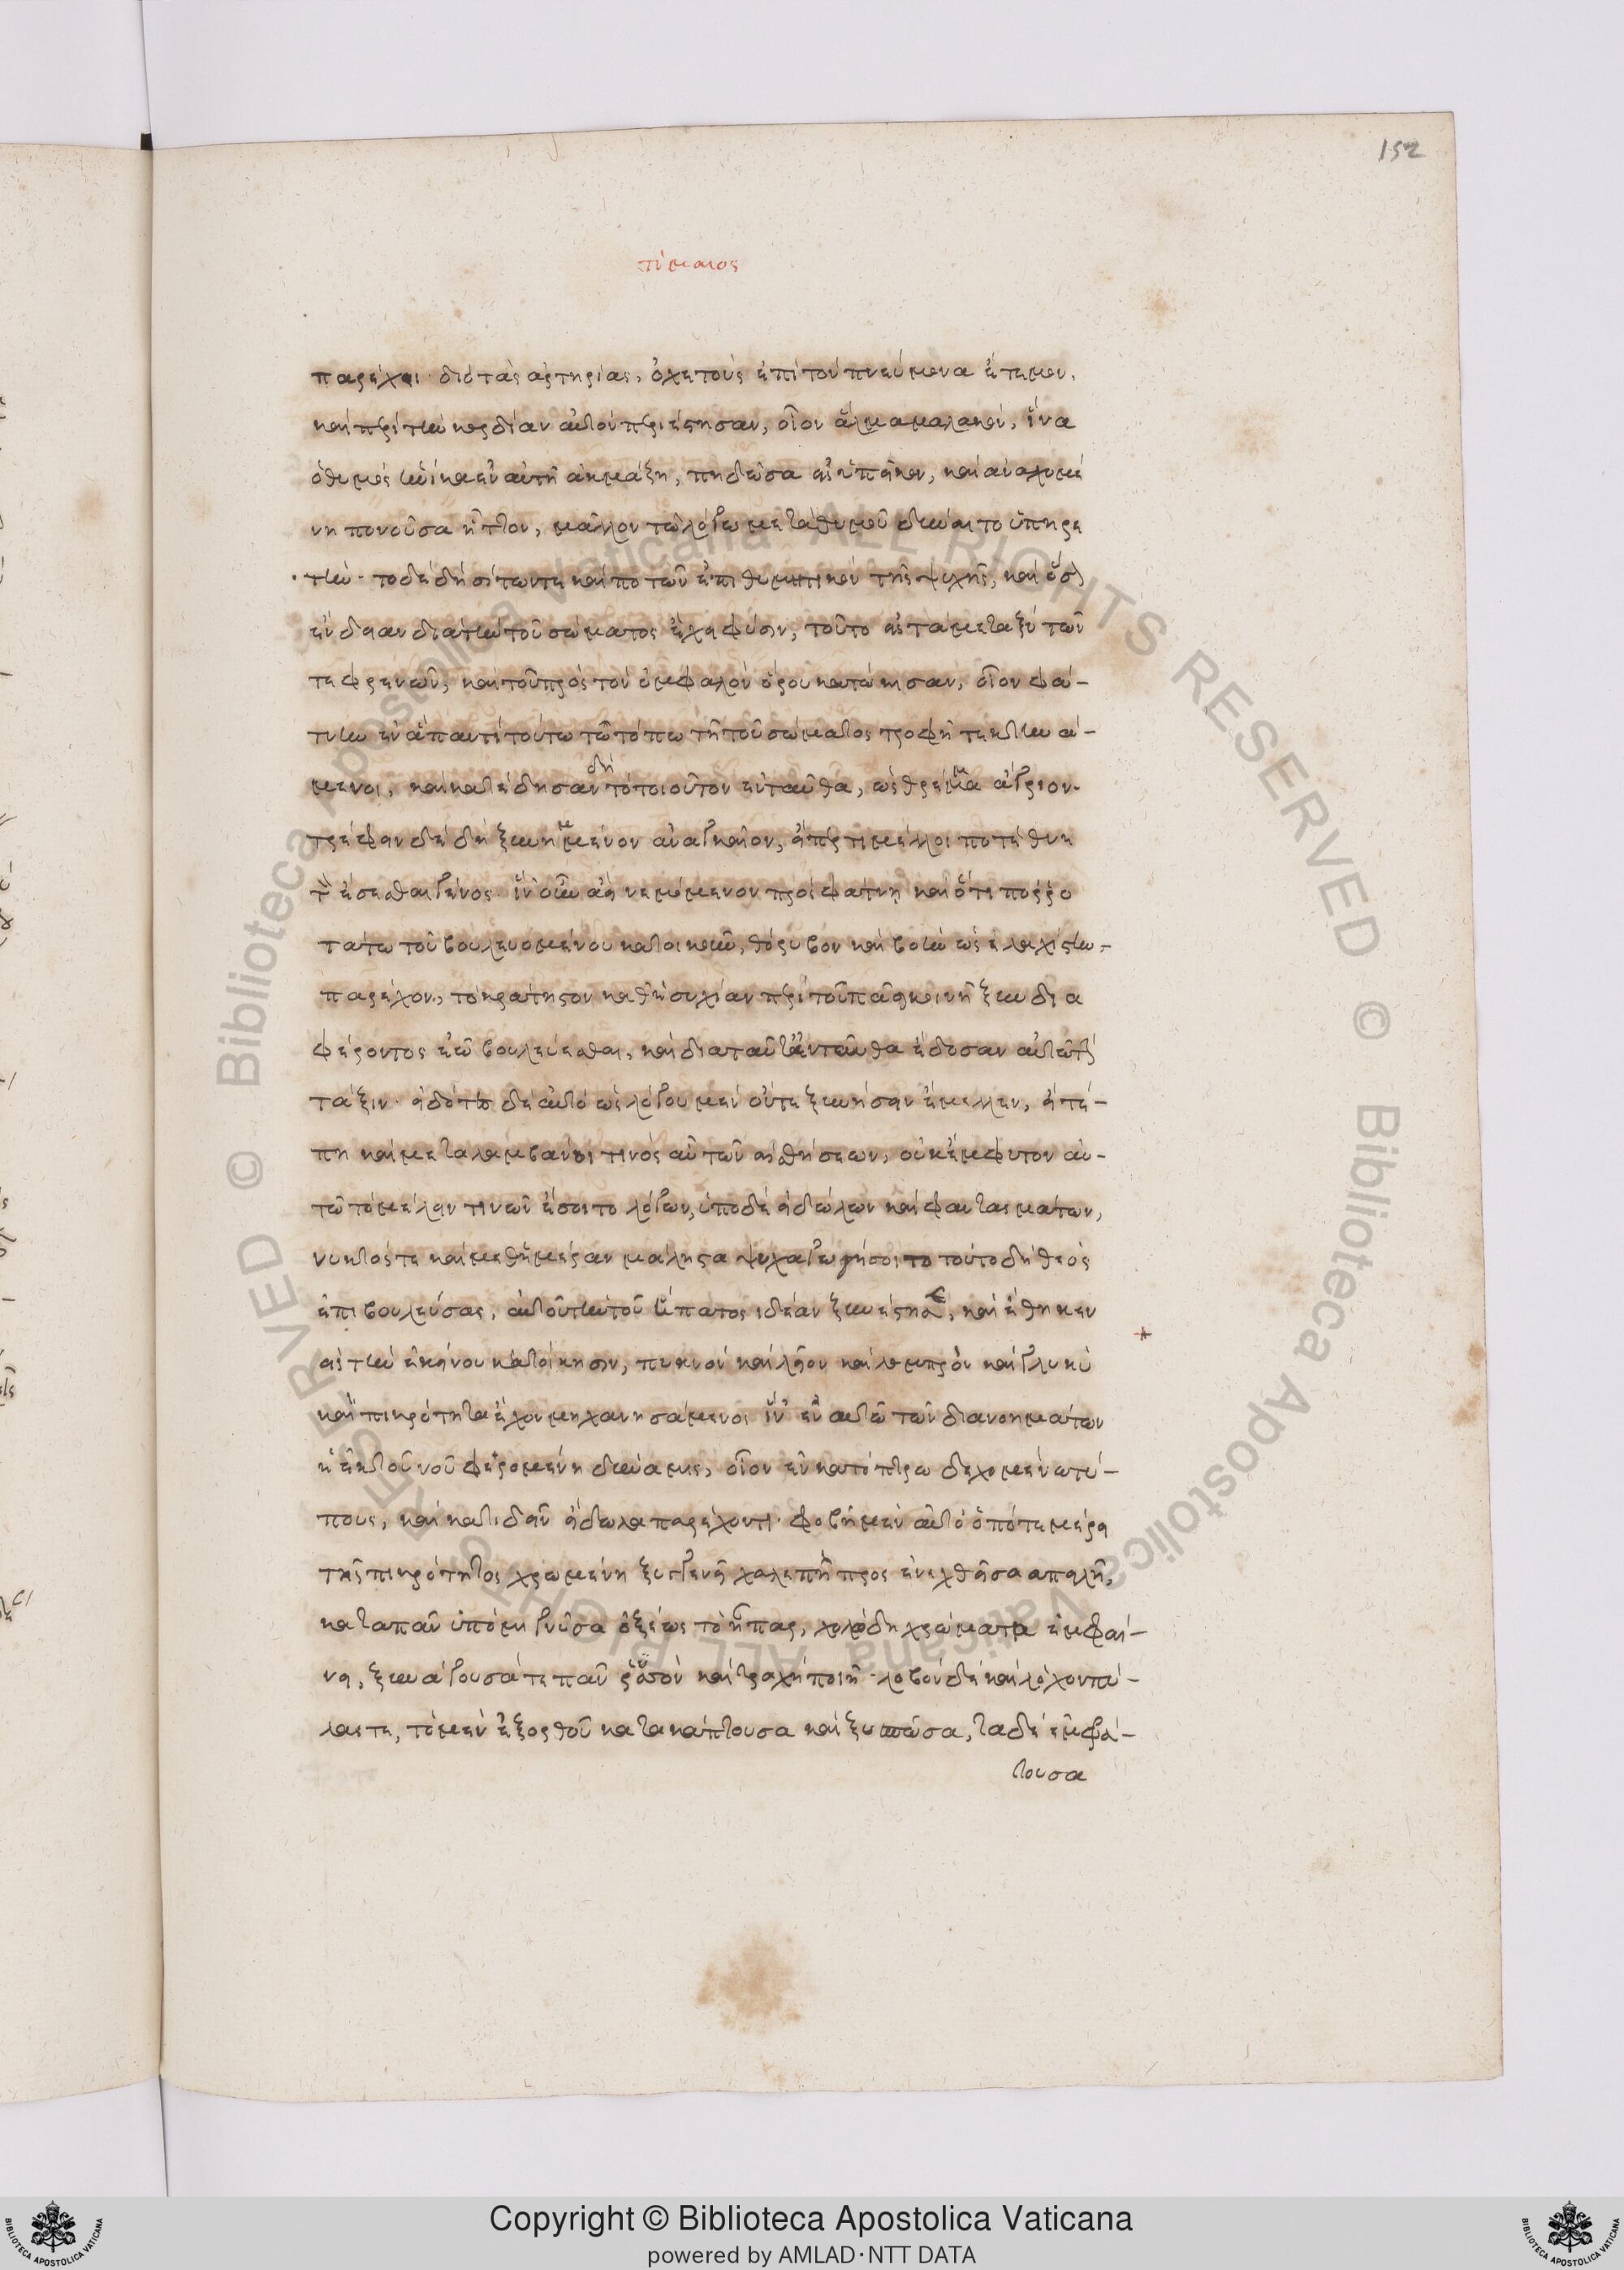 152
τίμαιος
παρέχοι· διὸ τὰς ἀρτηρίας, ὀχετοὺς ἐπὶ τὸν πνεύμονα ἔτεμον,
καὶ περὶ τὴν καρδίαν αὐτὸν περιέστησαν, οἷον ἅλμα μαλακὸν, ἵνα
ὁ θυμὸς ἡνίκα ἐν αὐτῇ ἀκμάζῃ, πηδῶσα εἰς ὑπεῖκον, καὶ ἀναψυχομέ
νη πονοῦσα ἧττον, μᾶλλον τῷ λόγῳ μετὰ θυμοῦ δύναιτο ὑπηρε
τεῖν· τὸ δὲ δὴ σίτων τε καὶ ποτῶν ἐπιθυμητικὸν τῆς ψυχῆς, καὶ ὅσων
ἔνδειαν διὰ τὴν τοῦ σώματος ἔχει φύσιν, τοῦτο εἰς τὰ μεταξὺ τῶν
τε φρενῶν, καὶ τοῦ πρὸς τὸν ὀμφαλὸν ὅρου κατῴκισαν, οἷον φά-
τνην ἐν ἅπαντι τούτῳ τῷ τόπῳ τῇ τοῦ σώματος τροφῇ τεκτηνά-
μενοι, καὶ κατέδησαν δὴ τὸ τοιοῦτον ἐνταῦθα, ὡς θρέμμα ἄγριον·
τρέφειν δὲ δὴ ξυνημμένον ἀναγκαῖον, εἴπερ τι μέλλοι ποτὲ θνη
τὸν ἔσεσθαι γένος· ἵν' οὖν ἀεὶ νεμόμενον πρὸς φάτνῃ καὶ ὅτι πορρο
τάτω τοῦ βουλευομένου κατοικοῦν, θόρυβον καὶ βοὴν ὡς ἐλαχίστην,
παρέχον, τὸ κράτιστον καθ' ἡσυχίαν περὶ τοῦ πᾶσι κοινῇ ξυνδια
φέροντος ἐῷ βουλεύεσθαι, καὶ διὰ ταῦτα ἐνταῦθα ἔδοσαν αὐτῷ τὴν
τάξιν· εἰδότες δὲ αὐτὸ ὡς λόγου μὲν οὔτε ξυνήσειν ἔμελλεν, εἴ τέ-
πῃ καὶ μεταλαμβάνοι τινὸς αὖ τῶν αἰσθήσεων, οὐκ ἔμφυτον αὐ-
τῷ τὸ μέλειν τινῶν ἔσοιτο λόγων, ὑπὸ δὲ εἰδώλων καὶ φαντασμάτων,
νυκτός τε καὶ μεθ' ἡμέραν μάλιστα ψυχαγωγήσοιτο τούτῳ δὴ θεὸς
ἐπιβουλεύσας, αὐτοῦ τὴν τοῦ ἥπατος ἰδέαν ξυνέστησε, καὶ ἔθηκεν
εἰς τὴν ἐκείνου κατοίκησιν, πυκνὸν καὶ λεῖον καὶ λαμπρὸν καὶ γλυκὺ
καὶ πικρότητα ἔχον μηχανησάμενοι ἵν' ἐν αὐτῷ τῶν διανοημάτων
ἡ ἐκ τοῦ νοῦ φερομένη δύναμις, οἷον ἐν κατόπτρῳ δεχομένῳ τύ-
πους, καὶ κατιδεῖν εἴδωλα παρέχοντι· φοβῇ μὲν αὐτὸ ὁπότε μέρει
τῆς πικρότητος χρωμένη ξυγγενεῖ χαλεπὴ προσενεχθεῖσα ἀπειλῇ,
κατὰ πᾶν ὑπομιγνῦσα ὀξέως τὸ ἧπαρ, χολώδη χρώματα ἐμφαί-
νει, ξυνάγουσά τε πᾶν ῥυσὸν καὶ τραχὺ ποιεῖ· λοβὸν δὲ καὶ λόχον πύ-
λας τε, τὸ μὲν ἐξ ὀρθοῦ κατακάπτουσα καὶ ξυσπῶσα, τὰ δὲ ἐμφρά-
τουσα
© Biblioteca Apostolica Vaticana ALL RIGHTS RESERVED © Biblioteca Apostolica Vaticana ALL RIGHTS RESERVED
Copyright © Biblioteca Apostolica Vaticana
powered by AMLAD·NTT DATA
BIBLIOTECA APOSTOLICA VATICANA
BIBLIOTECA APOSTOLICA VATICANA